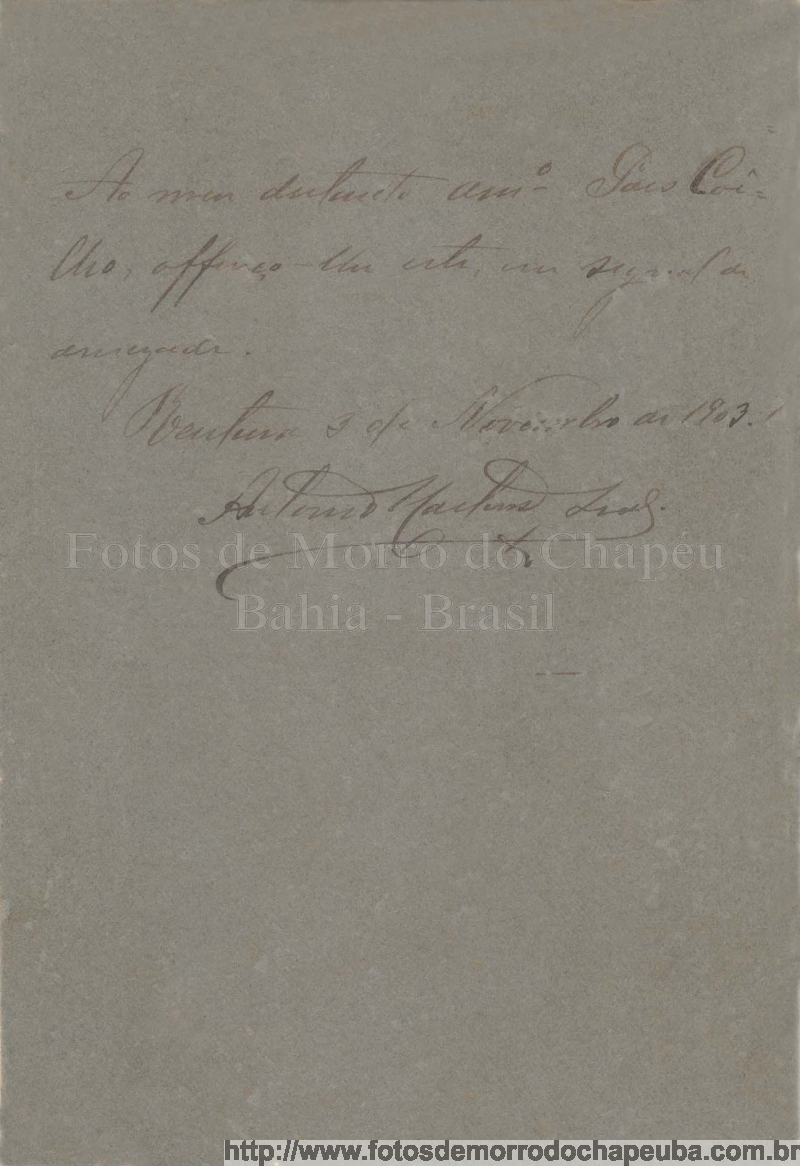 Ao meu distincto am.º Páes Coê-
lho, offereço-lhe este, em signal de
amizade.
Ventura 3 de Novembro de 1903.
Antonio Martins Leal.
Fotos de Morro do Chapéu
Bahia - Brasil
http://www.fotosdemorrodochapeuba.com.br